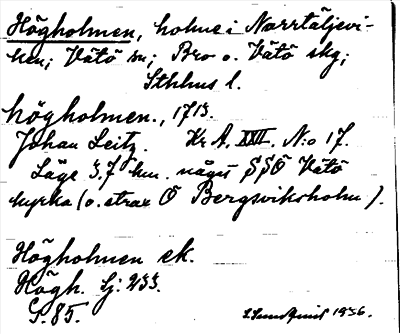 Högholmen, holme i Norrtäljevi-
ken; Vätö sn; Bro o. Vätö skg;
Sthlms l.
högholmen., 1713.
Johan Leitz. Kr A. XXII. N:o 17.
Läge 3,7 km. någu SSO Vätö
kyrka (o. strax O Bergsviksholm).
Högholmen ek.
Högh. Sj: 233.
S. 85.
1936.